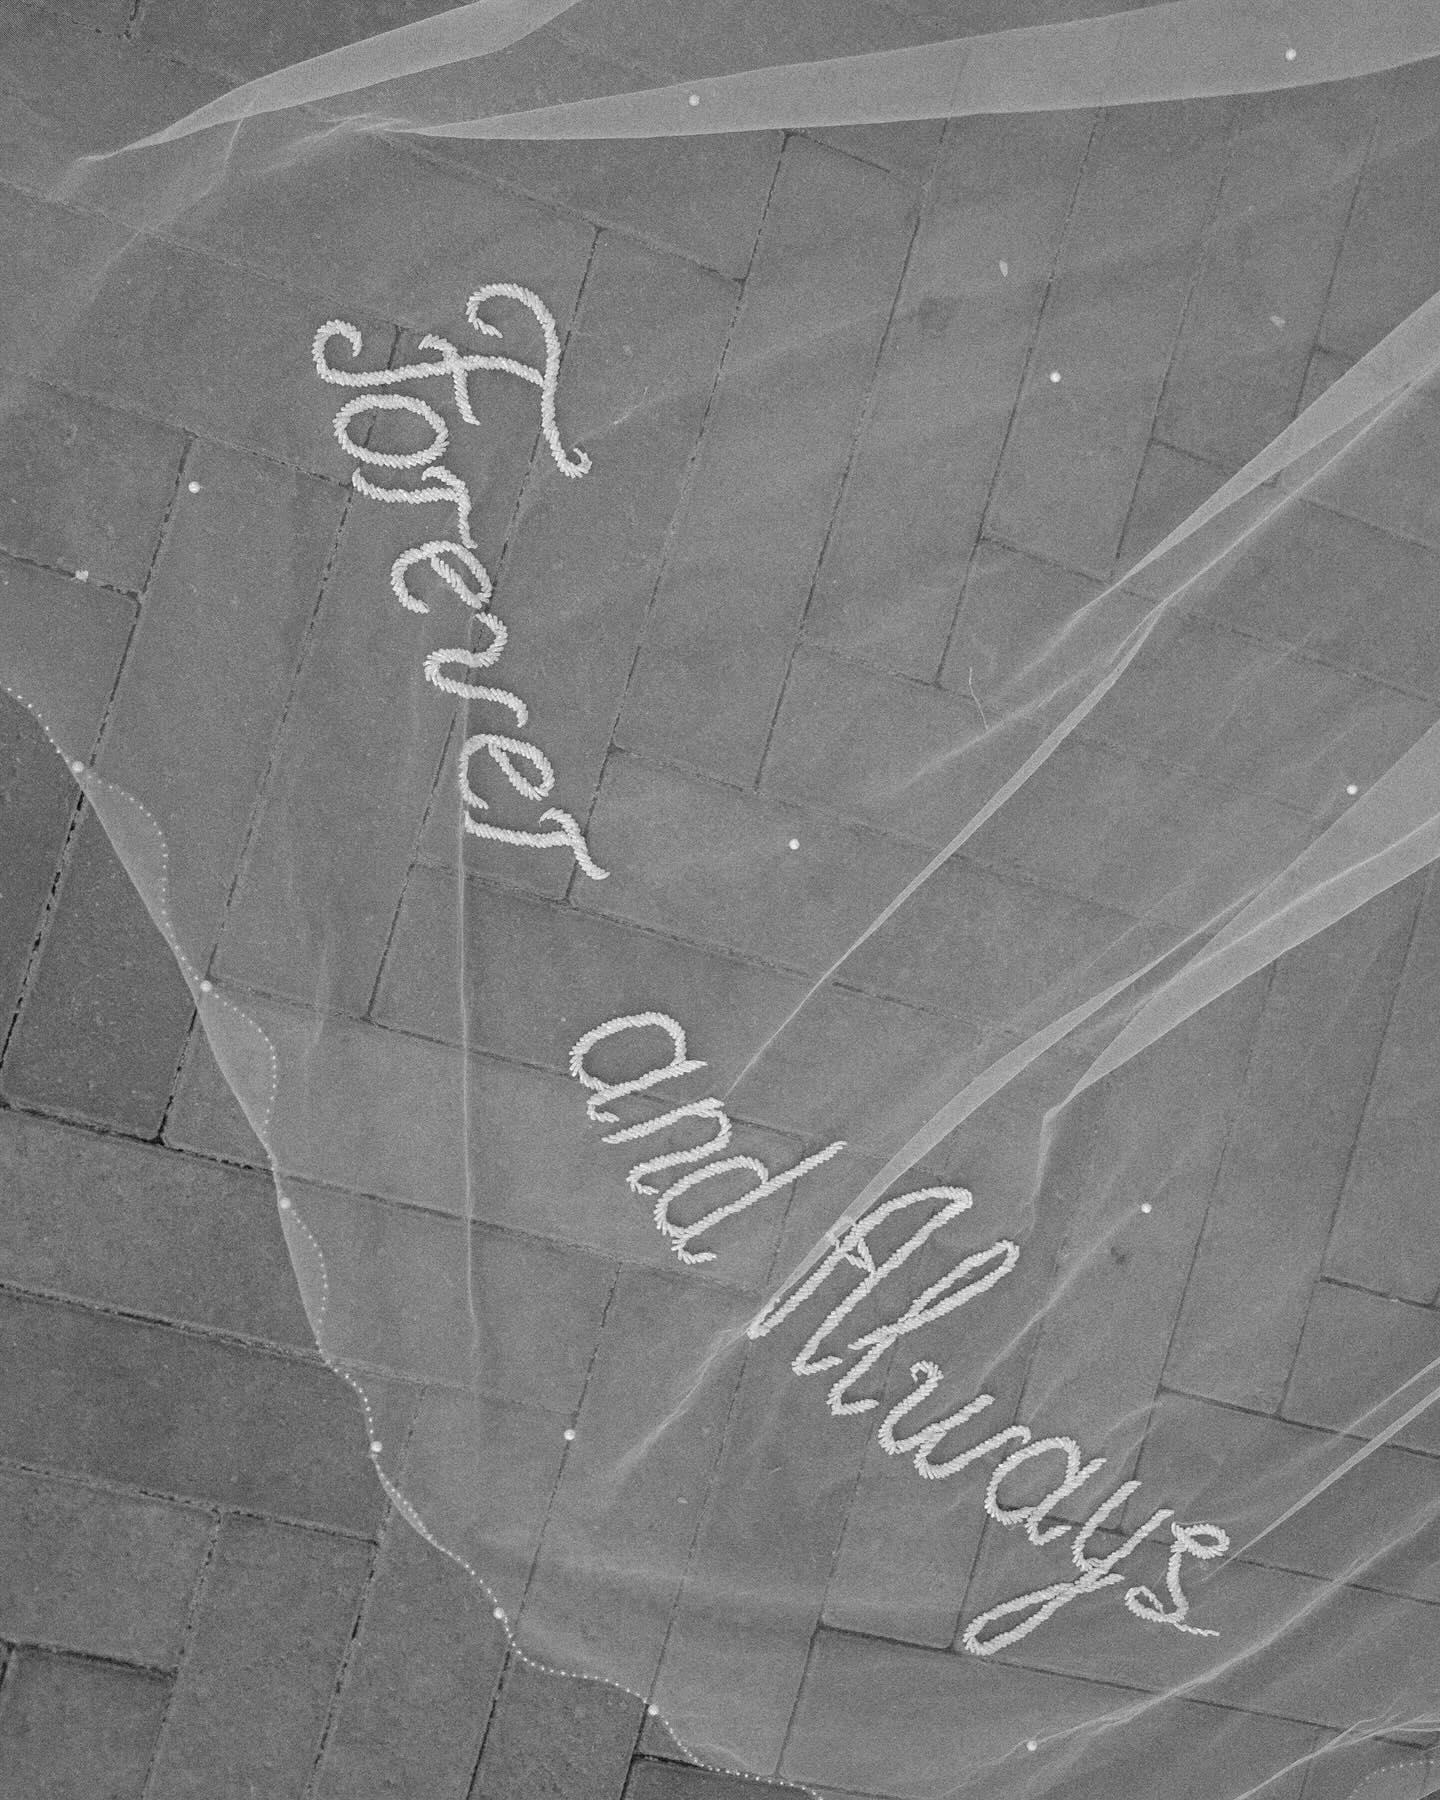 Forever
and Always